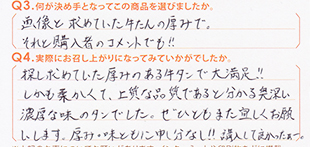 Q3.何が決め手となってこの商品を選びましたか。
画像と求めていた牛たんの厚みで。
それと購入者のコメントでも!!
Q4.実際にお召し上がりになってみていかがでしたか。
探し求めていた厚みのある牛タンで大満足!!
しかも柔かくて、上質な品質であると分かる奥深い
濃厚な味のタンでした。ぜひともまた宜しくお願
いします。厚み・味ともに申し分なし!!購入して良かったぁ〜。